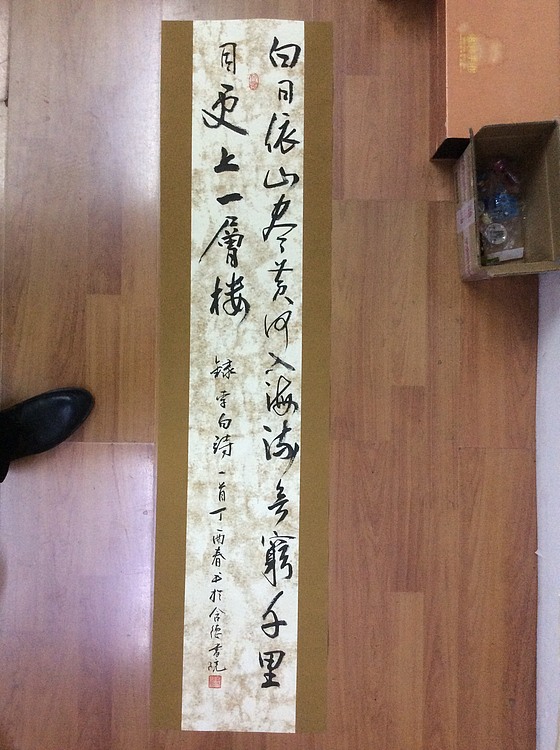 白日依山尽黄河入海流欲窮千里
目更上一層楼 録李白詩一首丁酉春书於合德书院